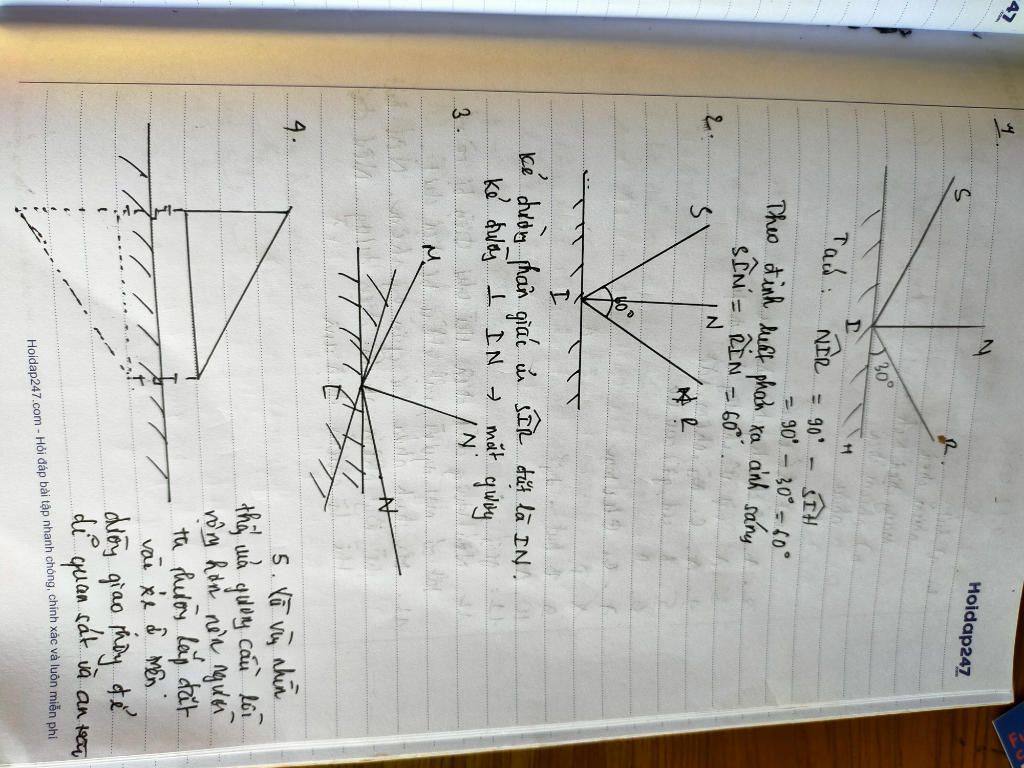 Hoidap247
1.
S
N
R
30°
I
H
Ta có: NIR = 90° - SIH
= 90° - 30° = 60°
Theo định luật phản xạ ánh sáng
SIN = RIN = 60°
2.
S
N
R
60°
I
Kẻ đường phân giác của SIR đặt là IN.
Kẻ đường ⊥ IN → mặt gương
3.
M
N
N
I
4.
5. Vì vùng nhìn
thấy của gương cầu lồi
rộng hơn nên người
ta thường lắp đặt
vào xe ô
đường giao thông để
dễ quan sát và an toàn
Hoidap247.com - Hỏi đáp bài tập nhanh chóng, chính xác và luôn miễn phí
47